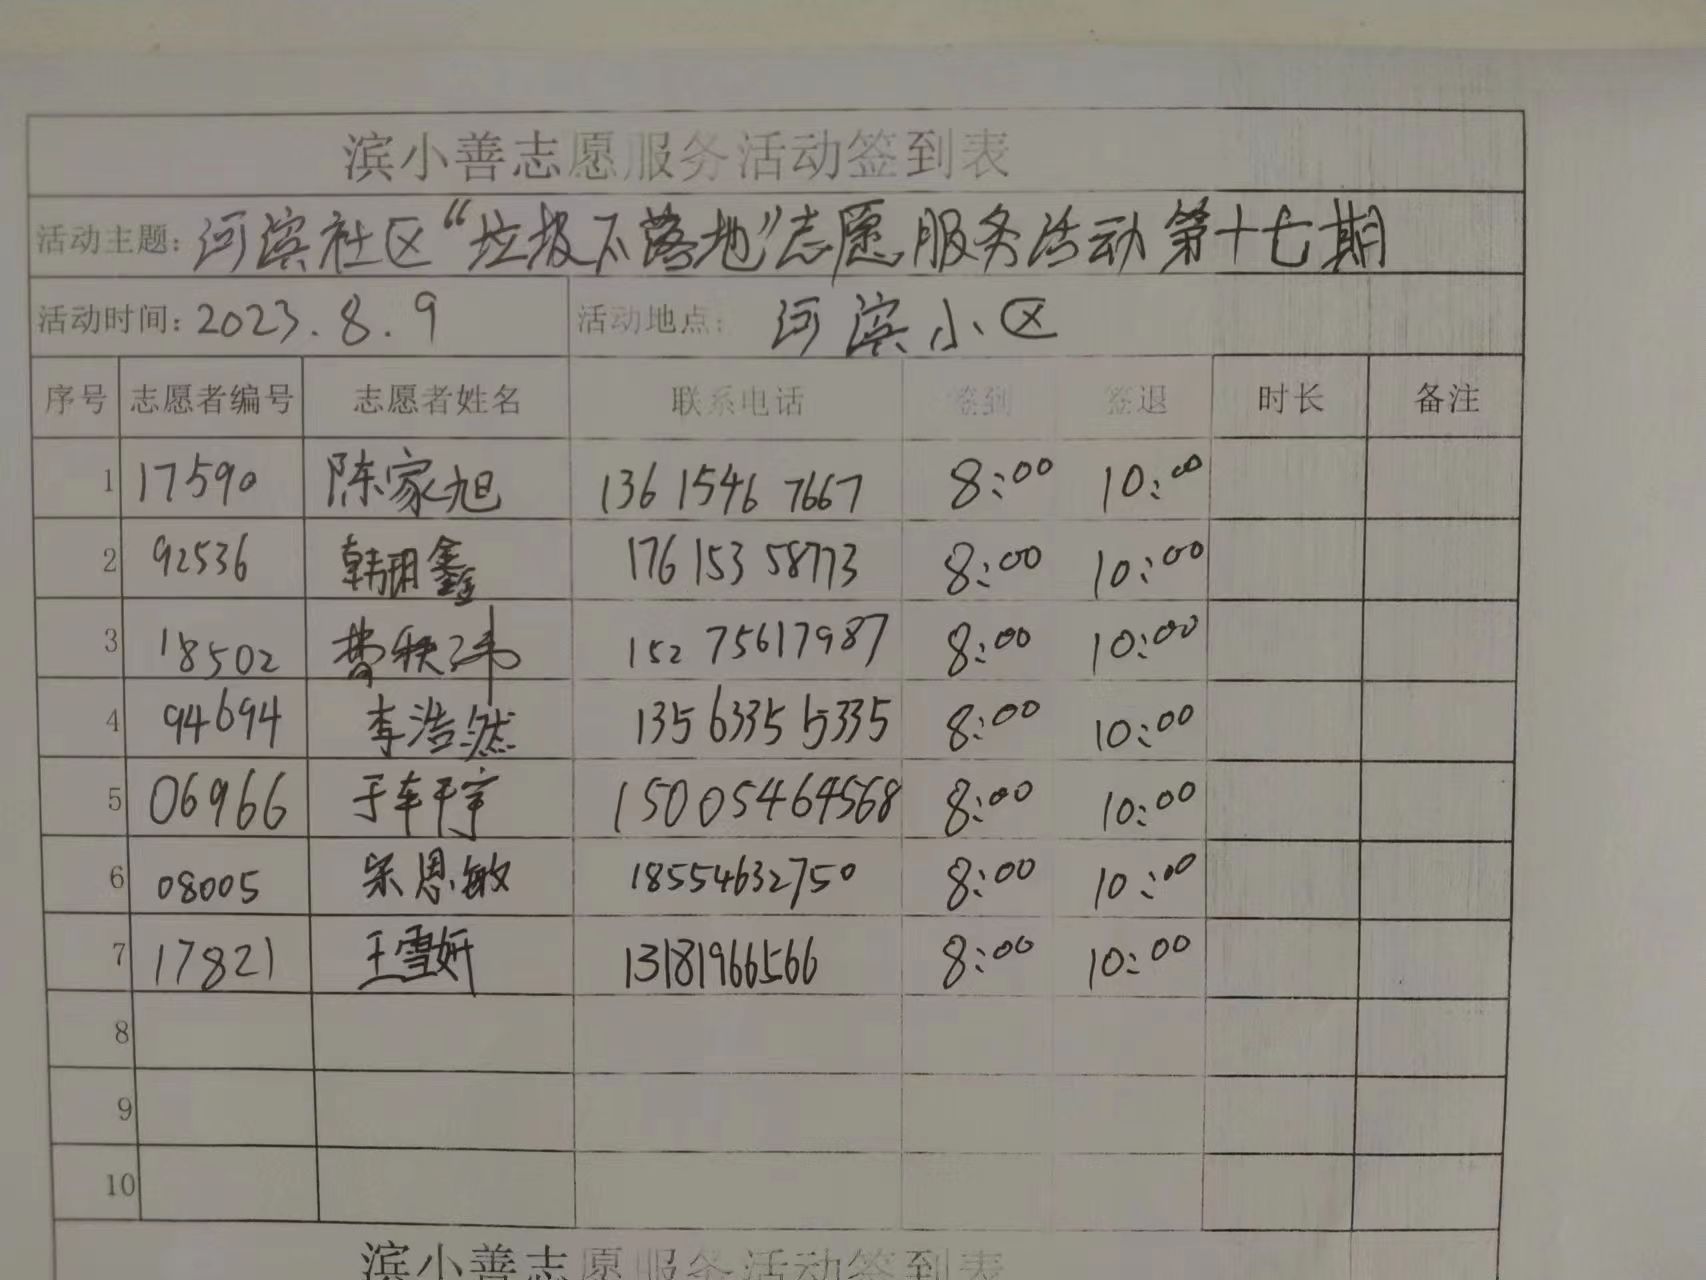 滨小善志愿服务活动签到表
活动主题：河滨社区“垃圾不落地”志愿服务活动第十七期
活动时间：2023.8.9 活动地点：河滨小区
序号 志愿者编号 志愿者姓名 联系电话 签到 签退 时长 备注
1 17590 陈家旭 136 1546 7667 8:00 10:00
2 92536 韩玥鑫 176 153 58773 8:00 10:00
3 18502 曹秩玮 152 75617987 8:00 10:00
4 94694 李浩然 13563355335 8:00 10:00
5 06966 于车干宇 15005464568 8:00 10:00
6 08005 宋恩敏 18554632750 8:00 10:00
7 17821 王雪妍 13181966566 8:00 10:00
8
9
10
滨小善志愿服务活动签到表